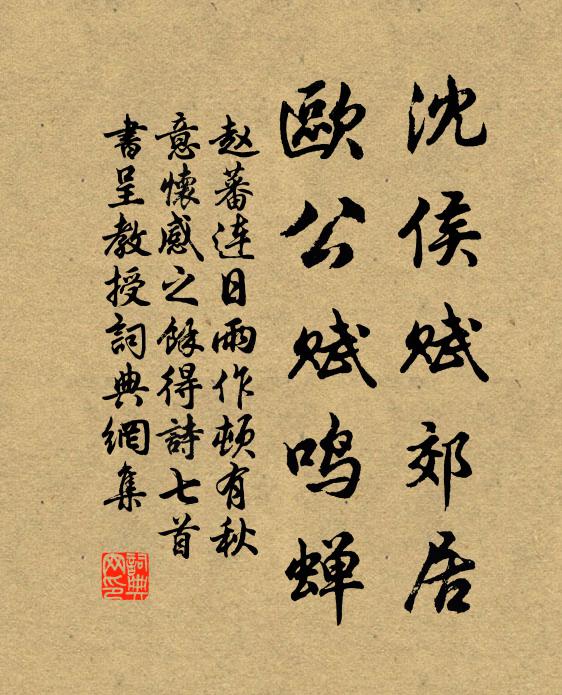 沈侯赋郊居
歐公赋鸣蝉
赵蕃连日雨作頓有秋
意懷感之餘得詩七首
書呈教授詞典網集
詞典网印